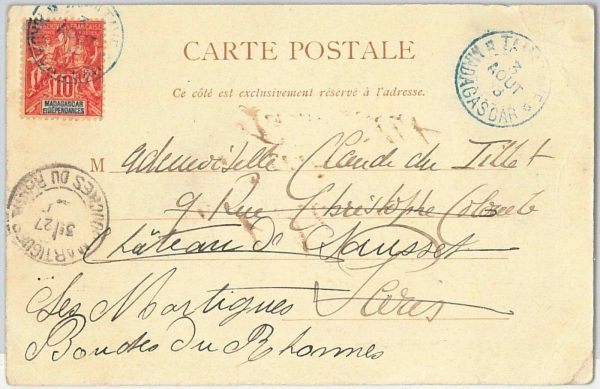 RÉPUBLIQUE FRANÇAISE
10
MADAGASCAR
ET DÉPENDANCES
CARTE POSTALE
Ce côté est exclusivement réservé à l'adresse.
3
AOUT
MADAGASCAR
Mademoiselle Claude du Tillet
9 Rue Christophe Colomb
Château de Sausset
Paris
Les Martigues
Bouches du Rhonnes
MARTIGUES
BCHES DU RHONE
27